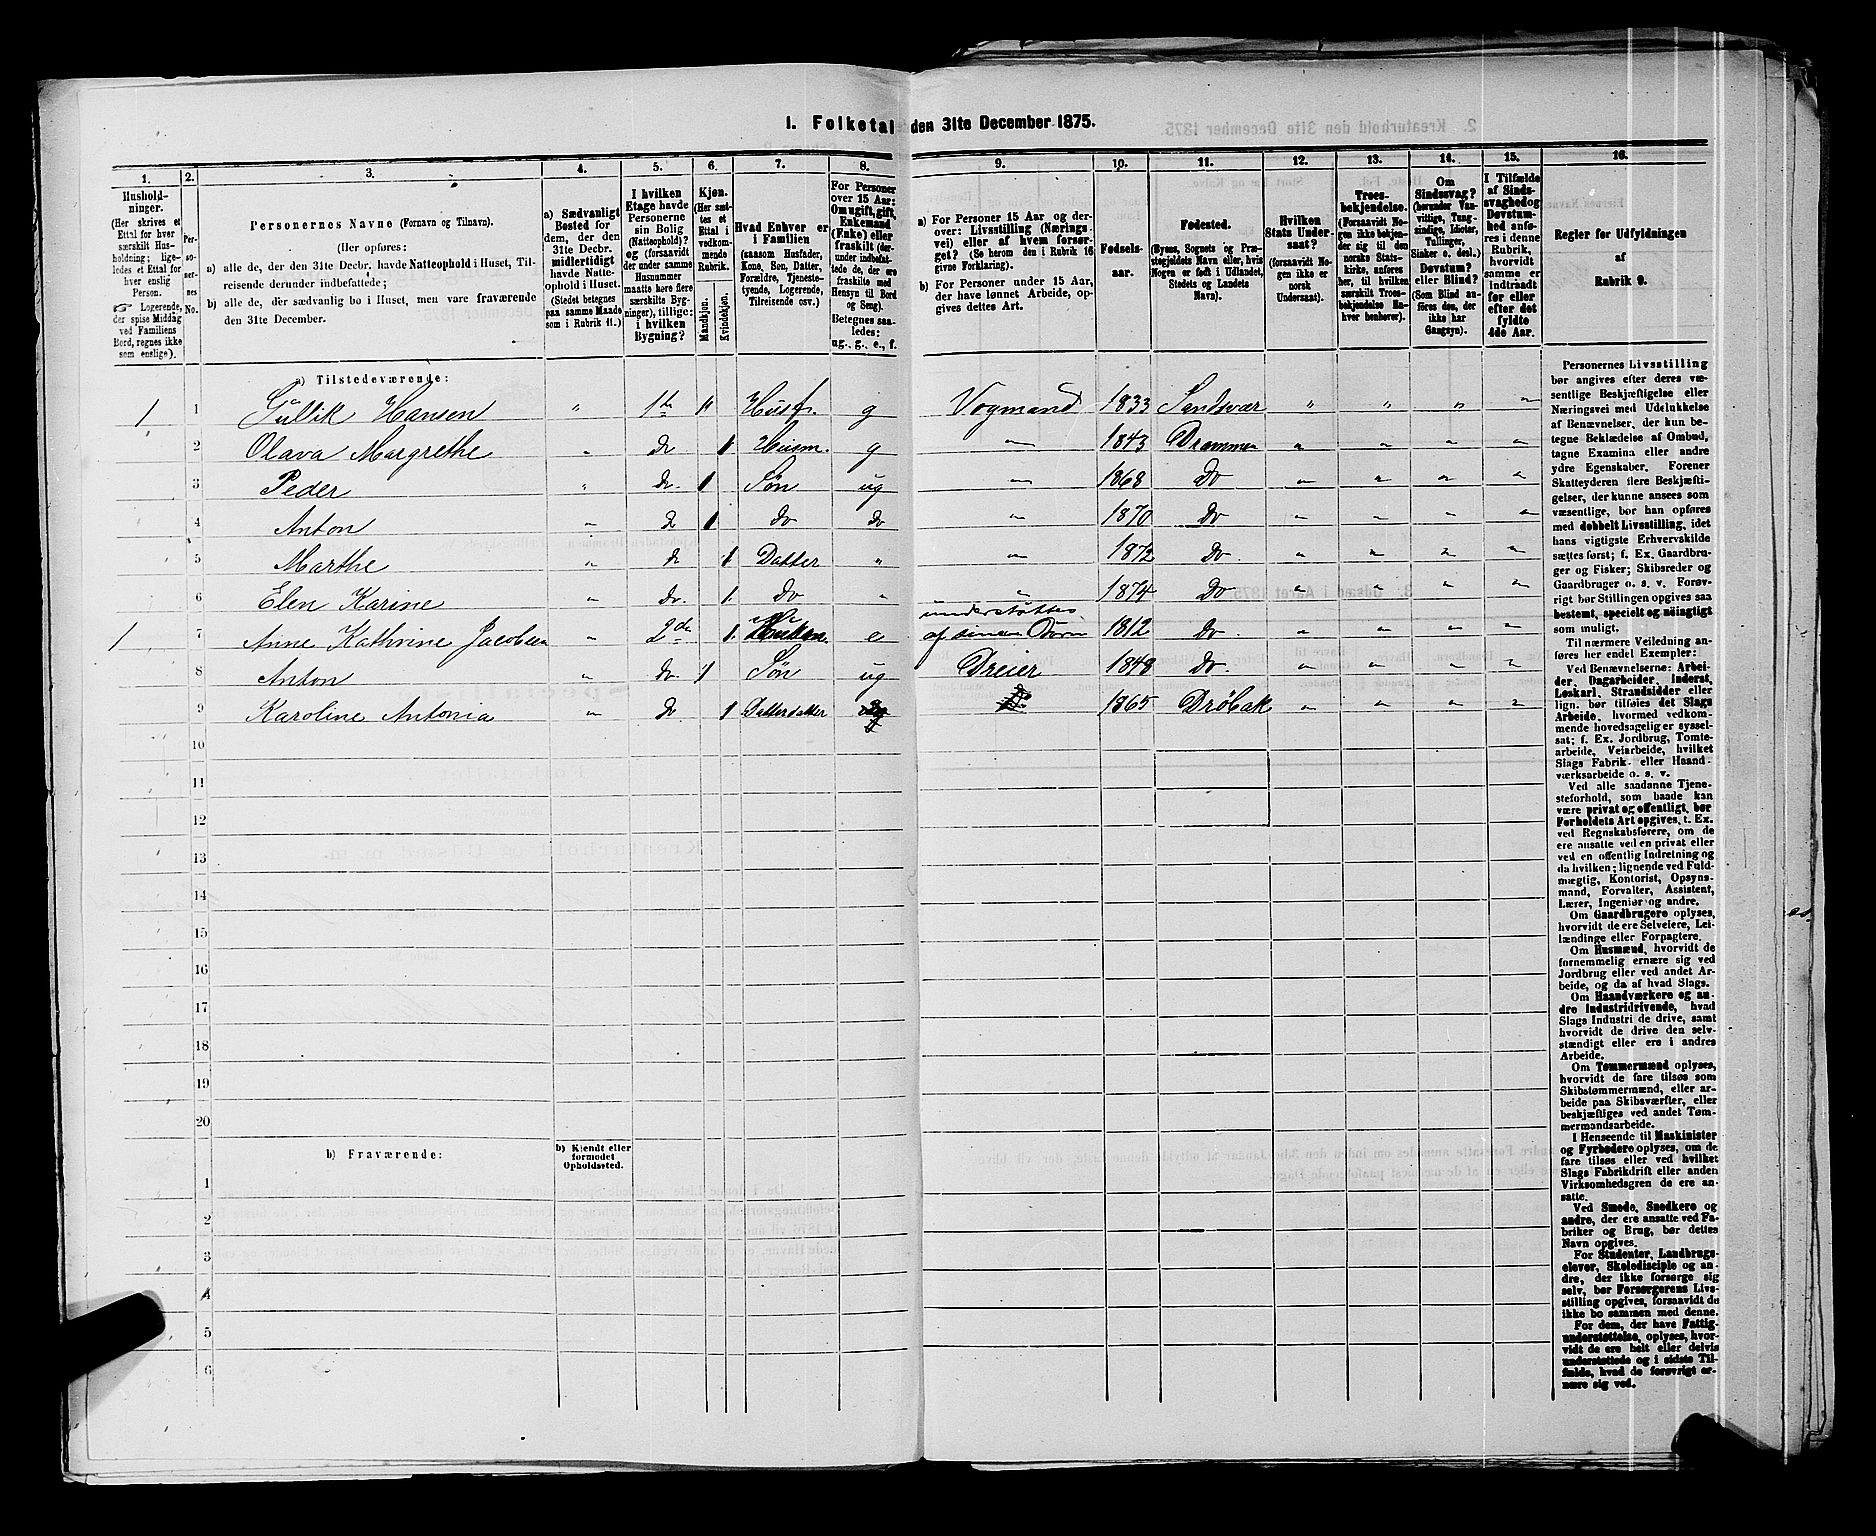 I. Folketal den 31te December 1875.
1. 2. 3. 4. 5. 6. 7. 8. 9. 10. 11. 12. 13. 14. 15. 16.
Hushold-
ninger.
(Her skrives et
Ettal for hver
særskilt Hus-
holdning; lige-
ledes et Ettal for
hver enslig
Person.
☞ Logerende,
der spise Middag
ved Familiens
Bord, regnes ikke
som enslige).
Per-
so-
ner-
nes
No.
Personernes Navne (Fornavn og Tilnavn).
(Her opføres:
a) alle de, der den 31te Decbr. havde Natteophold i Huset, Til-
reisende derunder indbefattede;
b) alle de, der sædvanlig bo i Huset, men vare fraværende
den 31te December.
a) Sædvanligt
Bosted for
dem, der den
31te Decbr.
midlertidigt
havde Natte-
ophold i Huset.
(Stedet betegnes
paa samme Maade
som i Rubrik 11.)
I hvilken
Etage havde
Personerne
sin Bolig
(Natteophold)?
og (forsaavidt
der under samme
Husnummer
maatte høre flere
særskilte Byg-
ninger), tillige:
i hvilken
Bygning?
Kjøn.
(Her sæt-
tes et
Ettal i
vedkom-
mende
Rubrik.
Mandkjøn.
Kvindekjøn.
Hvad Enhver er
i Familien
(saasom Husfader,
Kone, Søn, Datter,
Forældre, Tjeneste-
tyende, Logerende,
Tilreisende osv.)
For Personer
over 15 Aar:
Om ugift, gift,
Enkemand
(Enke) eller
fraskilt (der-
under indbefat-
tede de, der ere
fraskilte med
Hensyn til Bord
og Seng).
Betegnes saa-
ledes:
ug., g., e., f.
a) For Personer 15 Aar og der-
over: Livsstilling (Nærings-
vei) eller af hvem forsør-
get? (Se herom den i Rubrik 16
givne Forklaring).
b) For Personer under 15 Aar,
der have lønnet Arbeide, op-
gives dettes Art.
Fødsels-
aar.
Fødested.
(Byens, Sognets og Præ-
stegjeldets Navn eller, hvis
Nogen er født i Udlandet,
Stedets og Landets
Navn).
Hvilken
Stats Under-
saat?
(forsaavidt No-
gen ikke er
norsk
Undersaat).
Troes-
bekjendelse.
(Forsaavidt No-
gen ikke bekjen-
der sig til den
norske Stats-
kirke, anføres
her, til hvilken
særskilt Troes-
bekjendelse En-
hver henhører).
Om
Sindssvag?
(herunder Van-
vittige, Tung-
sindige, Idioter,
Tullinger,
Sinker o. desl.)
Døvstum?
eller Blind?
(Som Blind an-
føres den, der
ikke har
Gangsyn).
I Tilfælde
af Sinds-
svaghed og
Døvstum-
hed anfø-
res i denne
Rubrik,
hvorvidt
samme er
indtraadt
før eller
efter det
fyldte
4de Aar.
Regler for Udfyldningen
af
Rubrik 9.
a) Tilstedeværende:
1 1 Gullik Hansen " 1te 1 Husf. g Vogmand 1833 Sandsvær " " " "
2 Olava Margrethe " do 1 Husm. g " 1843 Drammen " " " "
3 Peder " do. 1 Søn ug " 1868 do " " " "
4 Anton " do 1 do do " 1870 do " " " "
5 Marthe " do 1 Datter " " 1872 do. " " " "
6 Elen Karine " do. 1 do " " 1874 do " " " "
1 7 Anne Kathrine Jacobsen " 2de 1. e understøttes af sine Børn 1812 do. " " " "
8 Anton " do. 1 Søn ug Dreier 1848 do. " " " "
9 Karoline Antonia " do. 1 Datterdatter 1865 Drøbak " " " "
10
11
12
13
14
15
16
17
18
19
20
b) Fraværende:
b) Kjendt eller
formodet
Opholdssted.
1
2
3
4
5
6
Personernes Livsstilling
bør angives efter deres væ-
sentlige Beskjæftigelse eller
Næringsvei med Udelukkelse
af Benævnelser, der kun be-
tegne Beklædelse af Ombud,
tagne Examina eller andre
ydre Egenskaber. Forener
Skatteyderen flere Beskjæfti-
gelser, der kunne ansees som
væsentlige, bør han opføres
med dobbelt Livsstilling, idet
hans vigtigste Erhvervskilde
sættes først; f. Ex. Gaardbru-
ger og Fisker; Skibsreder og
Gaardbruger o. s. v. Forøv-
rigt bør Stillingen opgives saa
bestemt, specielt og nøiagtigt
som muligt.
Til nærmere Veiledning an-
føres her endel Exempler:
Ved Benævnelserne: Arbei-
der, Dagarbeider, Inderst,
Løskarl, Strandsidder eller
lign. bør tilføies det Slags
Arbeide, hvormed vedkom-
mende hovedsagelig er syssel-
sat; f. Ex. Jordbrug, Tomte-
arbeide, Veiarbeide, hvilket
Slags Fabrik- eller Haand-
værksarbeide o. s. v.
Ved alle saadanne Tjene-
steforhold, som baade kan
være privat og offentligt, bør
Forholdets Art opgives, t. Ex.
ved Regnskabsførere, om de
ere ansatte ved en privat eller
ved en offentlig Indretning og
da hvilken; lignende ved Fuld-
mægtig, Kontorist, Opsyns-
mand, Forvalter, Assistent,
Lærer, Ingeniør og andre.
Om Gaardbrugere oplyses,
hvorvidt de ere Selveiere, Lei-
lændinge eller Forpagtere.
Om Husmænd, hvorvidt de
fornemmelig ernære sig ved
Jordbrug eller ved andet Ar-
beide, og da af hvad Slags.
Om Haandværkere og an-
dre Industridrivende, hvad
Slags Industri de drive, samt
hvorvidt de drive den selv-
stændigt eller ere i andres
Arbeide.
Om Tømmermænd oplyses,
hvorvidt de fare tilsøs som
Skibstømmermænd, eller ar-
beide paa Skibsværfter, eller
beskjæftiges ved andet Tøm-
mermandsarbeide.
I Henseende til Maskinister
og Fyrbødere oplyses, om de
fare tilsøs eller ved hvilket
Slags Fabrikdrift eller anden
Virksomhedsgren de ere an-
satte.
Ved Smede, Snedkere og
andre, der ere ansatte ved Fa-
briker og Brug, bør dettes
Navn opgives.
For Studenter, Landbrugs-
elever, Skoledisciple og an-
dre, der ikke forsørge sig
selv, bør Forsørgerens Livs-
stilling opgives, forsaavidt de
ikke bo sammen med denne.
For dem, der have Fattig-
understøttelse, oplyses, hvor-
vidt de ere helt eller delvis
understøttede og i sidste Til-
fælde, hvad de forøvrigt er-
nære sig ved.